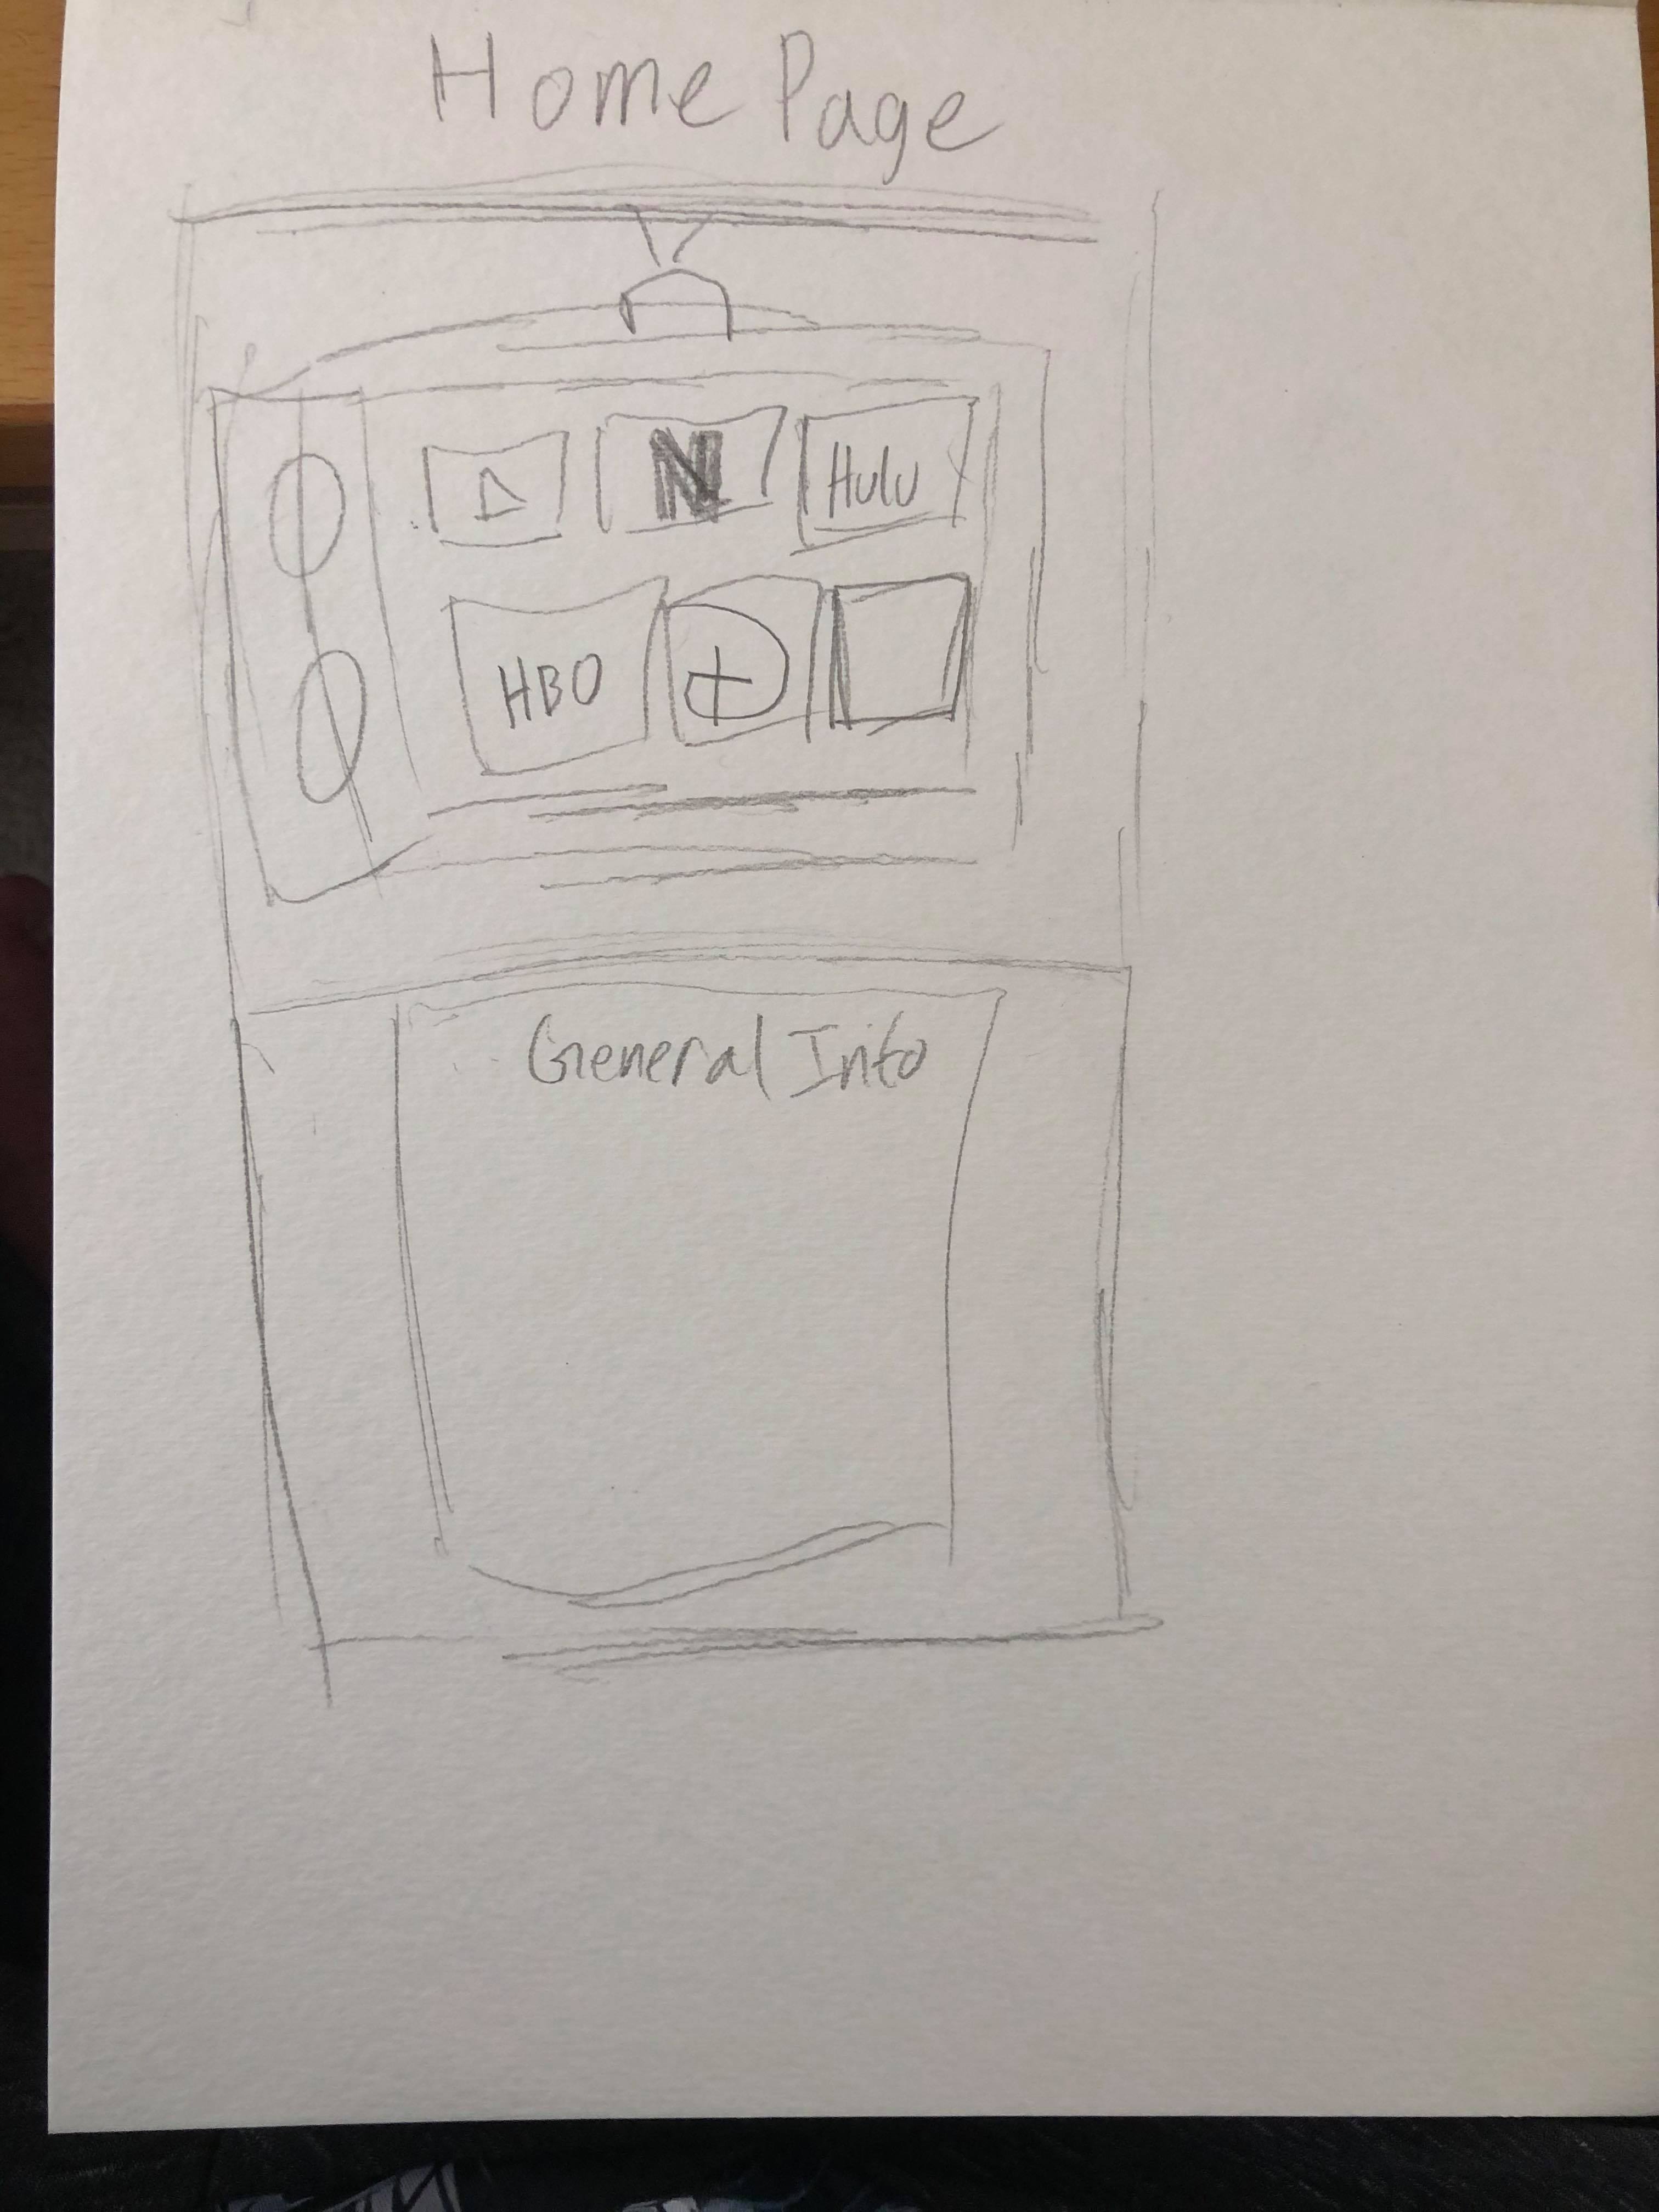 Home Page
N Hulu
HBO +
General Info